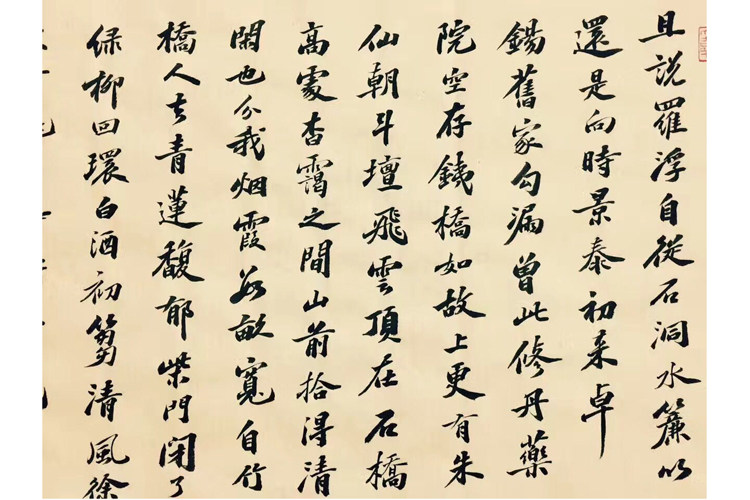 且說羅浮自從石洞水簾以
還是向時景泰初来卓
錫舊家勾漏曾此修丹藥
院空存銕橋如故上更有朱
仙朝斗壇飛雲頂在石橋
高處杳靄之間山前拾得清
閑也分我烟霞數畝寬自竹
橋人去青蓮馥郁柴門閉了
緑柳回環白酒初篘清風徐